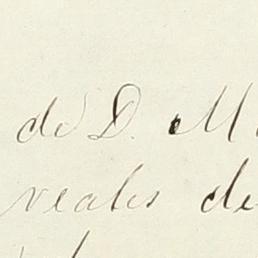 de D. M
reales de